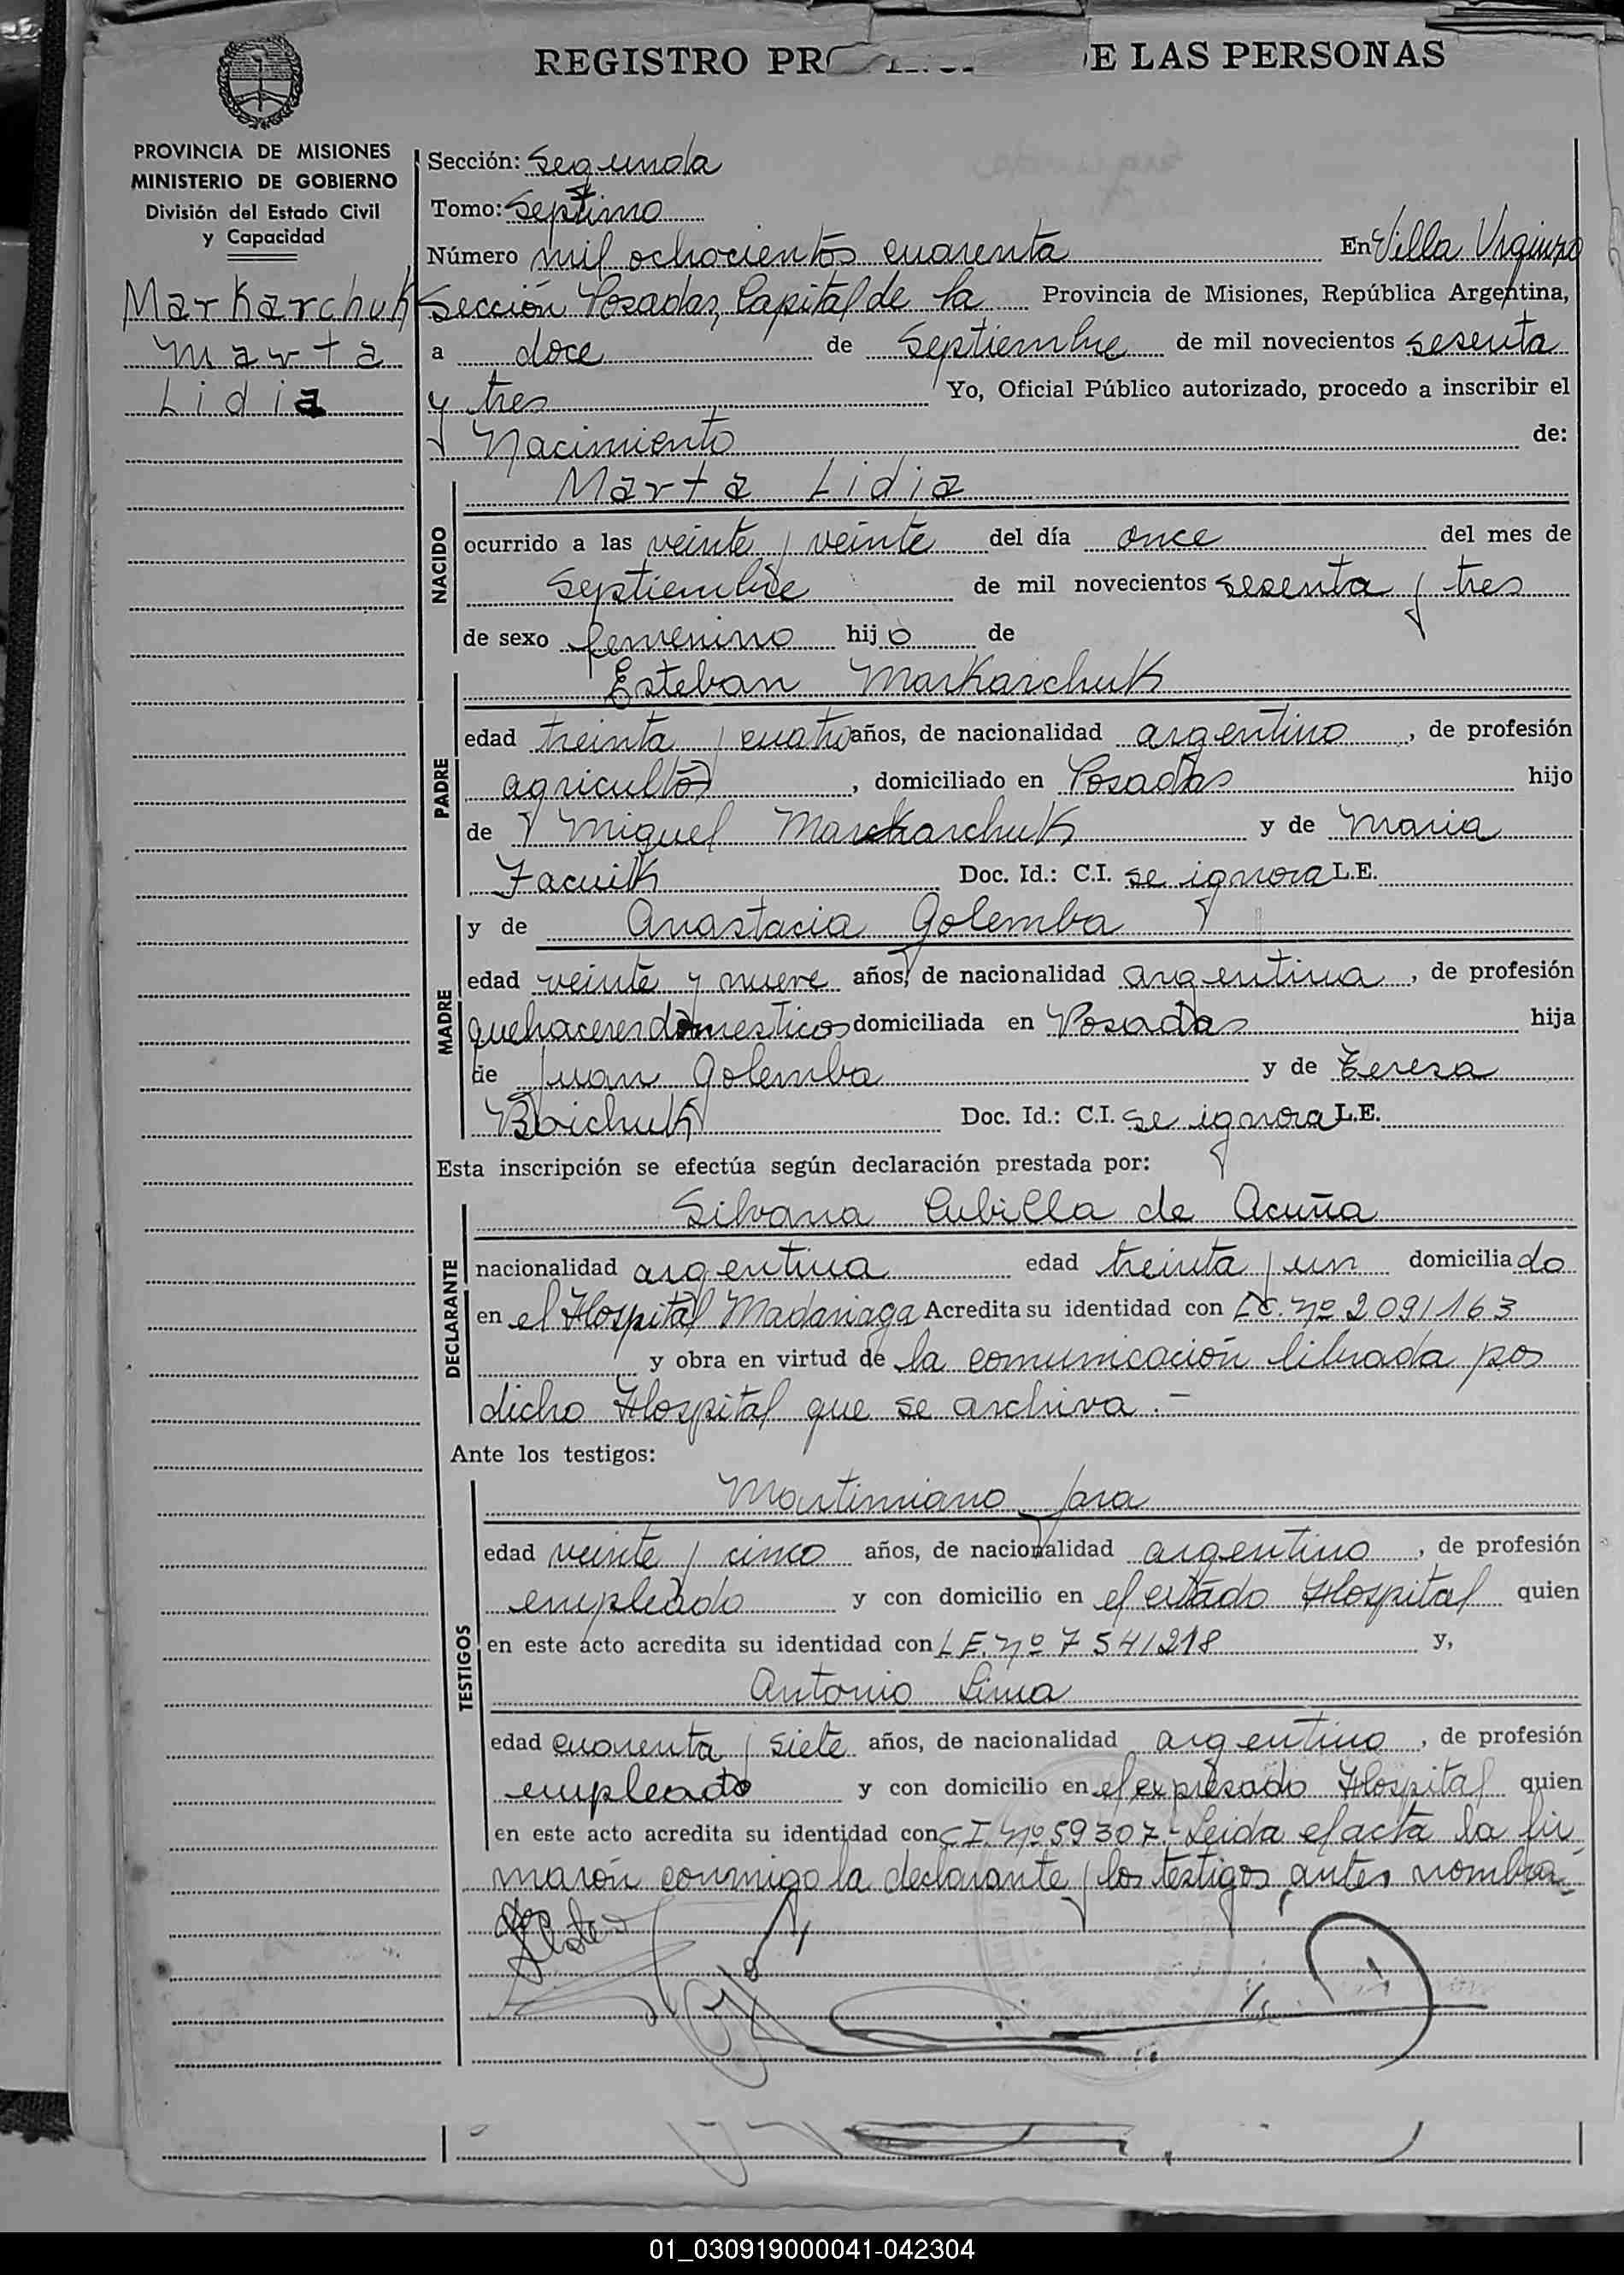 REGISTRO PR E LAS PERSONAS
PROVINCIA DE MISIONES
MINISTERIO DE GOBIERNO
División del Estado Civil
y Capacidad
Markarchuk
Marta
Lidia
Sección: Segunda
Tomo: Septimo
Número mil ochocientos cuarenta En Villa Urquiza
Sección Posadas, Capital de la Provincia de Misiones, República Argentina,
a doce de Septiembre de mil novecientos sesenta
y tres Yo, Oficial Público autorizado, procedo a inscribir el
Nacimiento de:
Marta Lidia
NACIDO
ocurrido a las veinte y veinte del día once del mes de
Septiembre de mil novecientos sesenta y tres
de sexo femenino hijo de
Esteban Markarchuk
PADRE
edad treinta y cuatro años, de nacionalidad argentino, de profesión
agricultor, domiciliado en Posadas hijo
de Miguel Markarchuk y de Maria
Doc. Id.: C.I. se ignora L.E.
MADRE
y de Anastacia Golemba
edad veinte y nueve años, de nacionalidad argentina, de profesión
quehaceres domesticos domiciliada en Posadas hija
de Juan Golemba y de Teresa
Boichuk Doc. Id.: C.I. se ignora L.E.
Esta inscripción se efectúa según declaración prestada por:
DECLARANTE
Silvana Cubilla de Acuña
nacionalidad argentina edad treinta y un domiciliado
en el Hospital Madariaga Acredita su identidad con L.C. Nº 2091163
y obra en virtud de la comunicación librada por
dicho Hospital que se archiva.-
Ante los testigos:
TESTIGOS
Martimiano Jara
edad veinte y cinco años, de nacionalidad argentino, de profesión
empleado y con domicilio en el citado Hospital quien
en este acto acredita su identidad con L.E. Nº 7541218 y,
Antonio Lima
edad cuarenta y siete años, de nacionalidad argentino, de profesión
empleado y con domicilio en el expresado Hospital quien
en este acto acredita su identidad con C.I. Nº 59307.- Leida el acta la fir
maron conmigo la declarante y los testigos antes nombra-
dos
01_030919000041-042304